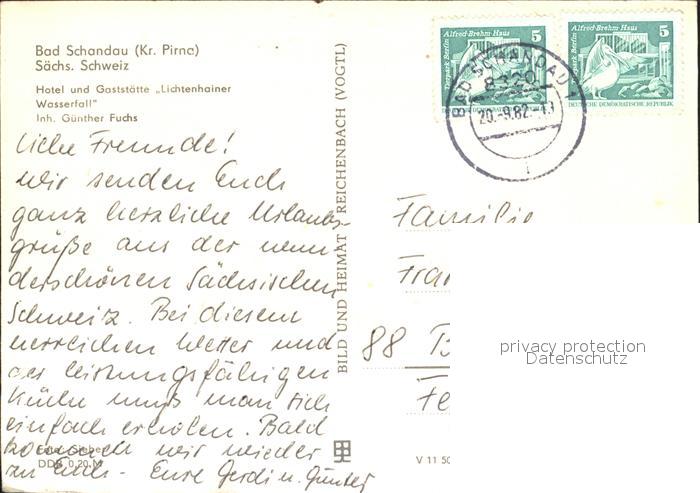 Bad Schandau (Kr. Pirna)
Sächs. Schweiz
Hotel und Gaststätte „Lichtenhainer
Wasserfall"
Inh. Günther Fuchs
Liebe Freunde!
wir senden Euch
ganz herzliche Urlaubs-
grüße aus der wun-
derschönen Sächsischen
Schweiz. Bei diesem
herrlichen Wetter und
der leistungsfähigen
Küche muß man sich
einfach erholen. Bald
kommen wir wieder
zu Euch - Eure Gerdi u. Günter
DDR 0,20 M
BILD UND HEIMAT REICHENBACH (VOGTL)
V 11 50
Alfred-Brehm-Haus 5
Tierpark Berlin
DEUTSCHE DEMOKRATISCHE REPUBLIK
Alfred-Brehm-Haus 5
Tierpark Berlin
DEUTSCHE DEMOKRATISCHE REPUBLIK
BAD SCHANDAU 1
8320
20.-9.82.-19
Familie
88
privacy protection
Datenschutz